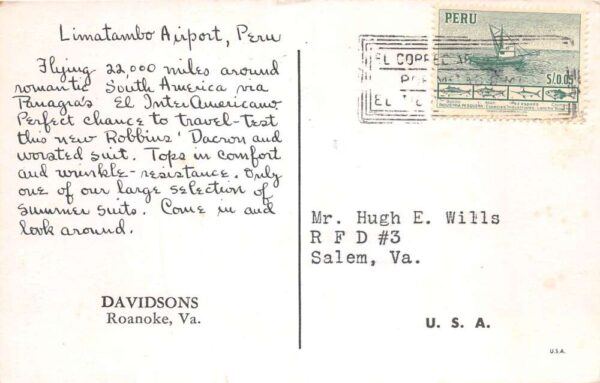 Limatambo Airport, Peru
Flying 22,000 miles around
romantic South America via
Panagra's El InterAmericano
Perfect chance to travel-test
this new Robbins' Dacron and
worsted suit. Tops in comfort
and wrinkle-resistance. Only
one of our large selection of
summer suits. Come in and
look around.
DAVIDSONS
Roanoke, Va.
PERU
S/0.05
EL CORREO
EL
Mr. Hugh E. Wills
R F D #3
Salem, Va.
U. S. A.
U.S.A.